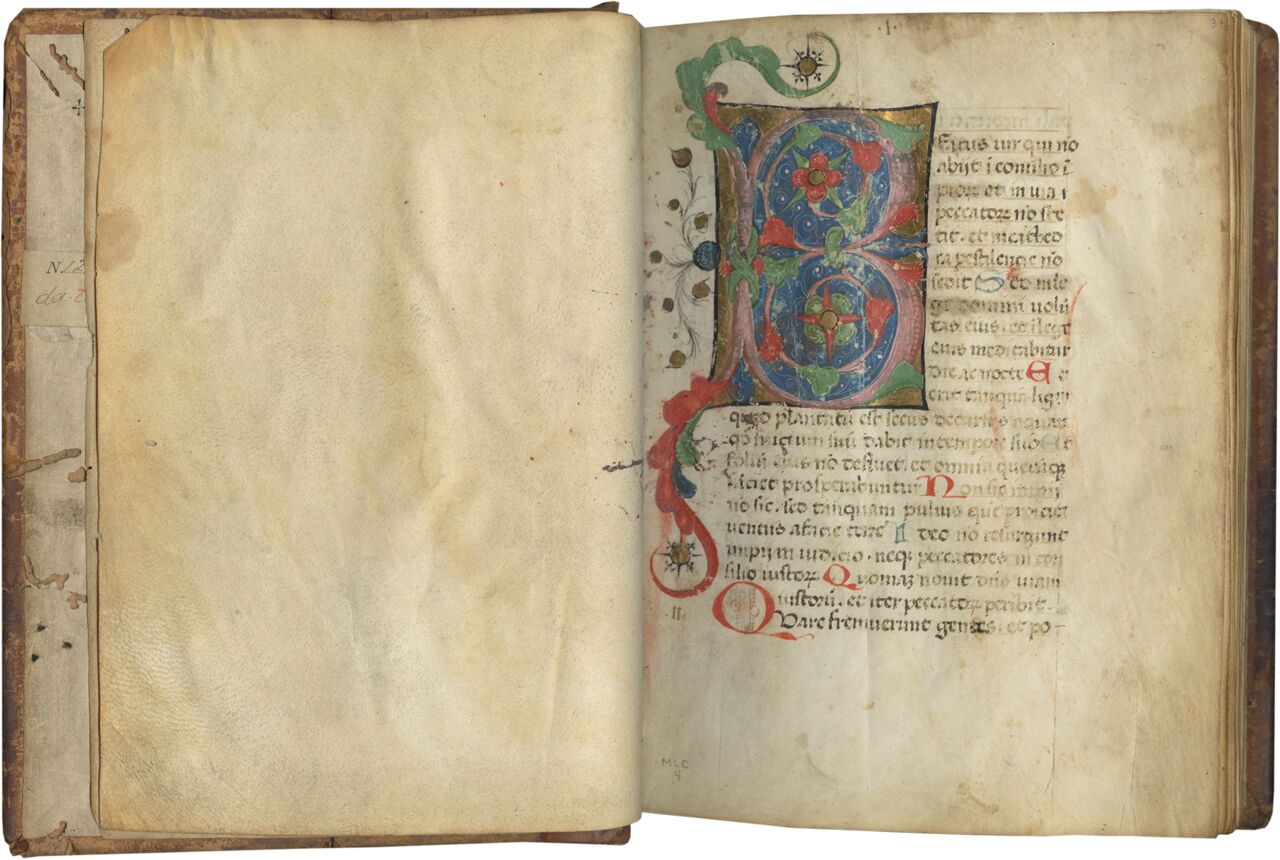 N. 12
da
·I·
3
B
Eatus uir qui nō
abijt ī consilio ī
pioꝝ et in uia
peccatoꝝ nō ste
tit. et in cathed
ra pestilencie nō
sedit Sed in le
ge domini volū
tas eius. et ī lege
eius meditabitur
die ac nocte E
erit tanquā lignū
quod plantatū est secus decursus aquaꝝ
qd̄ fructum suū dabit in tempore suo Et
foliū eius nō defluet. et omnia quecūq
faciet prosperabuntur Non sic impii
nō sic. sed tanquam puluis quē proicit
uentus a facie terre Ideo nō resurgunt
impij in iudicio. neqꝫ peccatores in con
silio iustoꝝ Quoniaꝫ nouit dn̄s uiam
iustorū. et iter peccatoꝝ peribit.
·II·
QVare fremuerunt gentes. et po
MLC
4